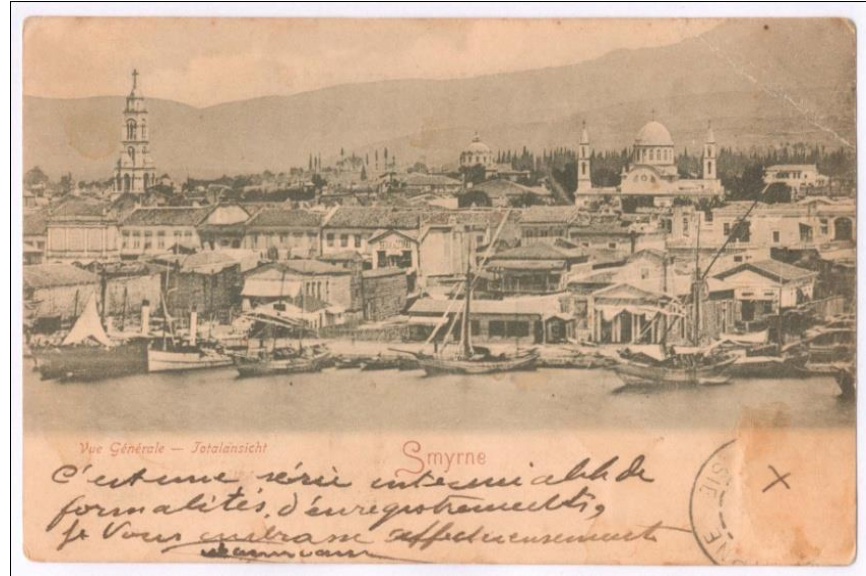 Vue Générale — Totalansicht
Smyrne
C'est une série interminable de
formalités, d'enregistrements,
je vous embrasse affectueusement
X